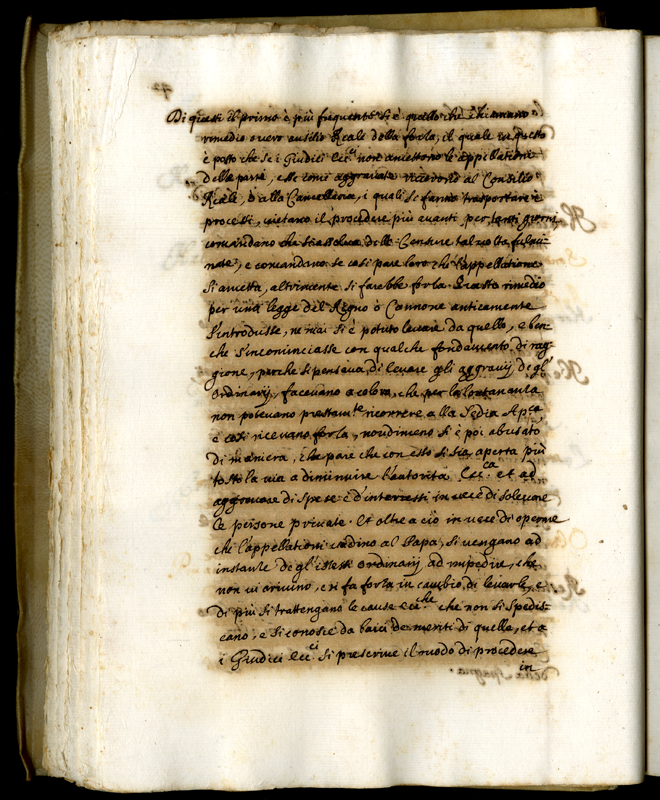 Di questi il primo è più frequente si è quello che chiamano
rimedio overo ausilio Reale della forza, il quale in questo
è posto che se i Giudici Ecc.ci non amettono le appellationi
delle parti, esse come aggravate ricorrono al Consilio
Reale, ò alla Cancelleria, i quali se fanno trasportare i
processi, vietano il procedere più avanti per tanti giorni,
comandano che si assolva delle Censure tal volta fulmi-
nate, e comandano se così pare loro che l'appellatione
si ametta, altrimente si farebbe forza. Questo rimedio
per una legge del Regno ò Cannone anticamente
s'introdusse, ne mai si è potuto levare da quello, e ben-
che s'incominciasse con qualche fondamento di rag-
gione, perche si pensava di levare gli aggravij de gl'
Ordinarij, facevano a coloro, che per la lontananza
non potevano prestam.te ricorrere alla Sedia Ap.ca
e così ricevano forza, nondimeno si è poi abusato
di maniera, che pare che con esto si sia aperta più
tosto la via a diminuire l'autorita Ecc.ca et ad
aggravare di spese e d'interessi in vece di solevare
le persone private. Et oltre a cio in vece di operare
che l'appellationi vadino al Papa, si vengano ad
instante de gl'istessi Ordinarij ad impedire, che
non vi arivino, e si fa forza in cambio di levarle, e
di più si trattengano le cause ecc.che che non si spedis-
cano, e si conosce da laici de meriti di quelle, et a
i Giudici Ecc.ci si prescrive il modo di procedere
in